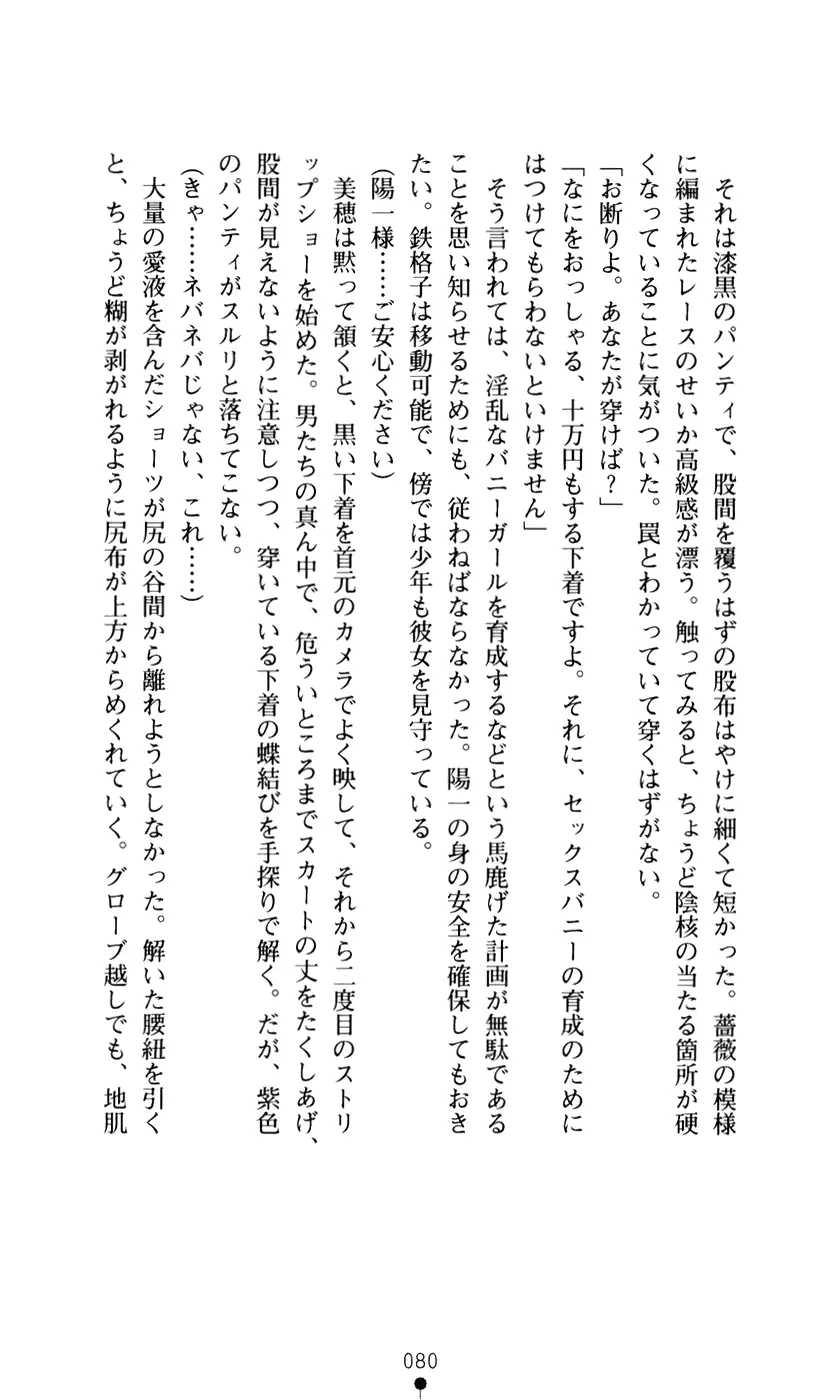 それは漆黒のパンティで、股間を覆うはずの股布はやけに細くて短かった。薔薇の模様
に編まれたレースのせいか高級感が漂う。触ってみると、ちょうど陰核の当たる箇所が硬
くなっていることに気がついた。罠とわかっていて穿くはずがない。
「お断りよ。あなたが穿けば？」
「なにをおっしゃる、十万円もする下着ですよ。それに、セックスバニーの育成のために
はつけてもらわないといけません」
そう言われては、淫乱なバニーガールを育成するなどという馬鹿げた計画が無駄である
ことを思い知らせるためにも、従わねばならなかった。陽一の身の安全を確保してもおき
たい。鉄格子は移動可能で、傍では少年も彼女を見守っている。
(陽一様……ご安心ください)
美穂は黙って頷くと、黒い下着を首元のカメラでよく映して、それから二度目のストリ
ップショーを始めた。男たちの真ん中で、危ういところまでスカートの丈をたくしあげ、
股間が見えないように注意しつつ、穿いている下着の蝶結びを手探りで解く。だが、紫色
のパンティがスルリと落ちてこない。
(きゃ……ネバネバじゃない、これ……)
大量の愛液を含んだショーツが尻の谷間から離れようとしなかった。解いた腰紐を引く
と、ちょうど糊が剥がれるように尻布が上方からめくれていく。グローブ越しでも、地肌
080